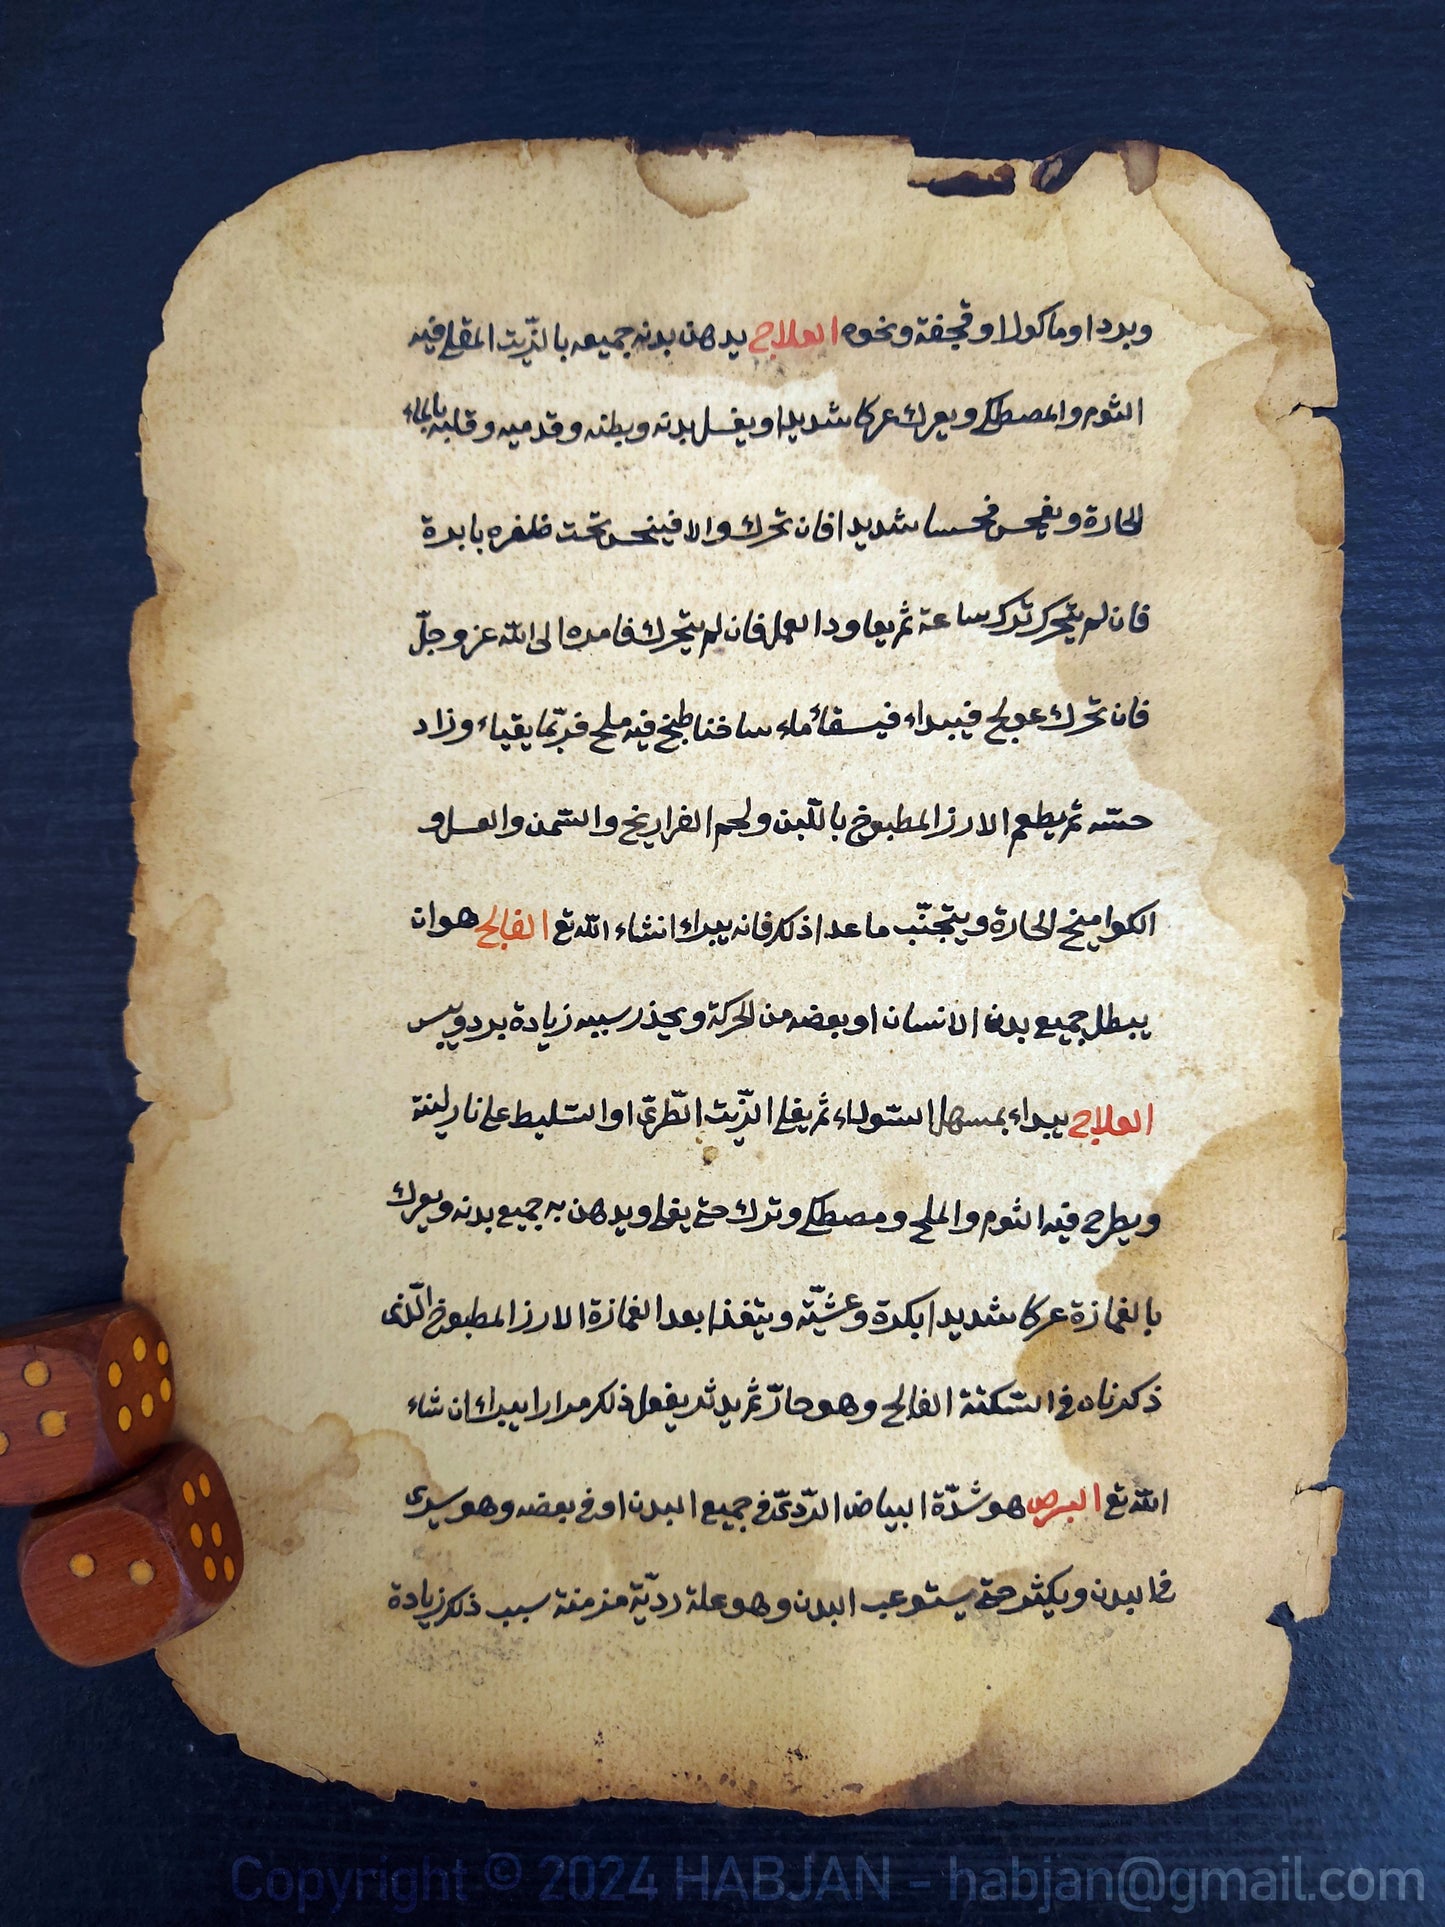 وبردا وماكولا او قحفة ونحوه العلاج يدهن بدنه جميعه بالزّيت المقلى فيه
الثوم والمصطكى ويعرك عركا شديدا ويغسل بدنه وبطنه وقدميه وقلبه بالماء
الحارة ويغمس شديدا فان تحرك والا فينخس تحت ظفره بابرة
فان لم يتحرك ترك ساعة ثم يعاود العمل فان لم يتحرك فامره الى الله عز وجلّ
فان تحرك عولج فيبداء فيسقأ ماء ساخنا طبخ فيه ملح فربّما يقياء وزاد
حسّه ثم يطعم الارز المطبوخ باللّبن ولحم الفراريخ والسّمن والعسل و
الكواميخ الحارة ويتجنّب ما عدا ذلك فانه يبراء انشاء الله تع الفالج هو ان
يبطل جميع بدن الانسان او بعضه من الحركة ويحذر سببه زيادة برد ويبس
العلاج يبداء بمسهل السّوداء ثم يغلى الزّيت الطّرىّ او السّليط على نار لينة
ويطرح فيه الثوم والملح ومصطكى وترك حتى يغلى ويدهن به جميع بدنه ويعرك
بالغمازة عركا شديدا بكرة وعشيّة ويتغذا بعد الغمازة الارز المطبوخ الّذى
ذكرناه فى السّكتة الفالج وهو حارّ ثم يدثر يفعل ذلك مرارا يبراء ان شاء
الله تع البرص هو شدّة البياض الرّدىّ فى جميع البدن او فى بعضه وهو يسرى
فى البدن ويكثر حتى يستوعب البدن وهو علة رديّة مزمنة سبب ذلك زيادة
Copyright © 2024 HABJAN - habjan@gmail.com